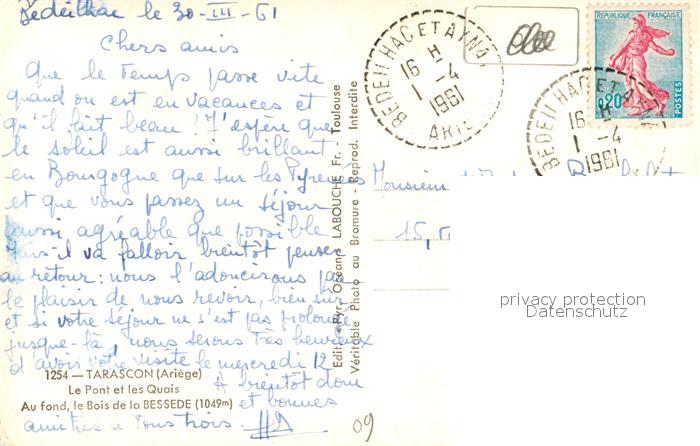 Bédeilhac le 30-III-61
Chers amis
Que le temps passe vite
quand on est en vacances et
qu'il fait beau ! J'espère que
le soleil est aussi brillant
en Bourgogne que sur les Pyrénées
et que vous passez un séjour
aussi agréable que possible
Mais il va falloir bientôt penser
au retour : nous l'adoucirons par
le plaisir de nous revoir, bien sûr
et si votre séjour ne s'est pas prolongé
jusque-là, nous serons très heureux
d'avoir votre visite le mercredi 12
A bientôt donc
et bonnes
amitiés à tous trois
1254 — TARASCON (Ariège)
Le Pont et les Quais
Au fond, le Bois de la BESSEDE (1049m)
Edit. "Pyr. Océan" LABOUCHE Fr. - Toulouse
Véritable Photo au Bromure - Reprod. Interdite
BEDEILHAC ET AYNAT
16 H
1 - 4
1961
ARIEGE
REPUBLIQUE FRANÇAISE
0,20
POSTES
BEDEILHAC ET
16 H
1 - 4
1961
Monsieur
15,
privacy protection
Datenschutz
09